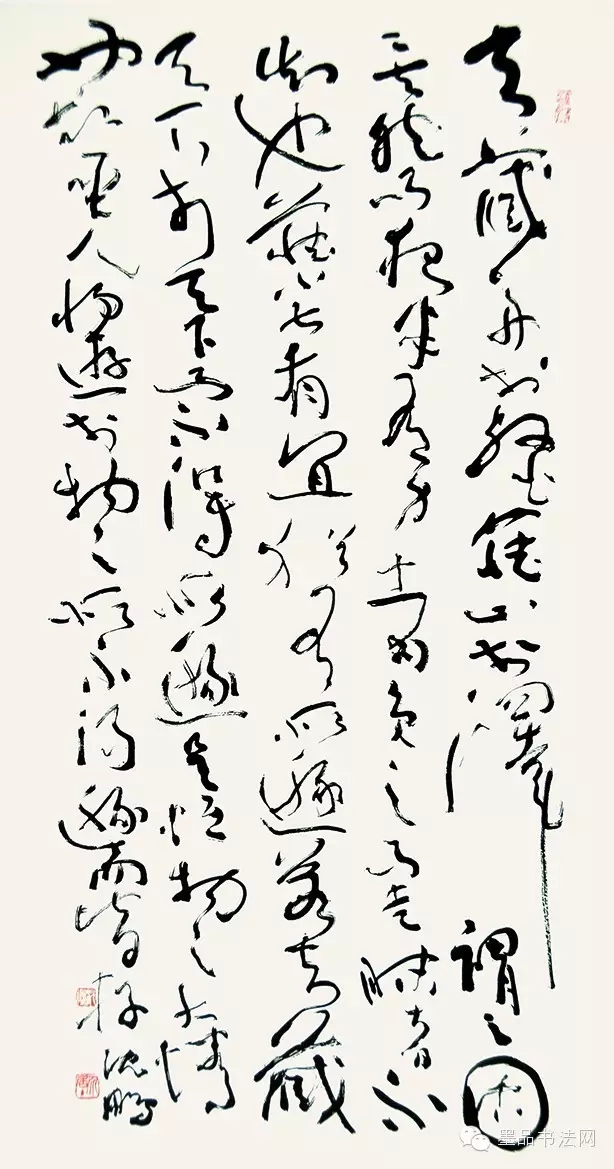 夫藏舟於壑藏山於澤謂之固
矣然而夜半有力者負之而走昧者不
知也藏小大有宜猶有所遯若夫藏
天下於天下而不得所遯是恒物之大情
也故聖人將遊於物之所不得遯而皆存 沈鵬
墨品书法网